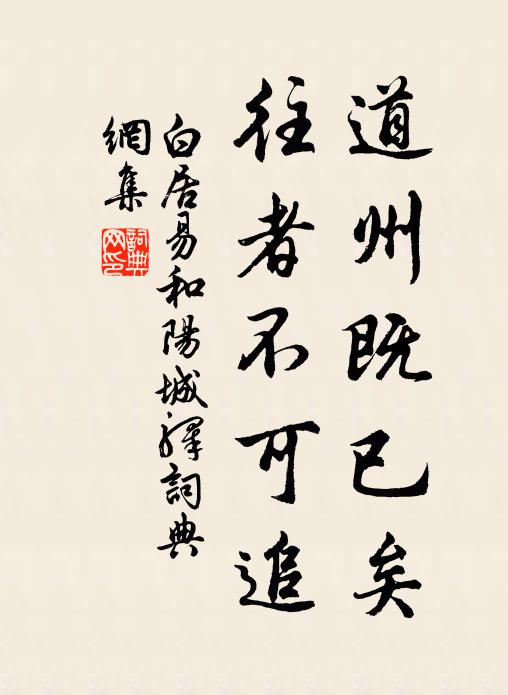 道州既已矣
往者不可追
白居易和陽城驛詞典
網集
詞典
网印